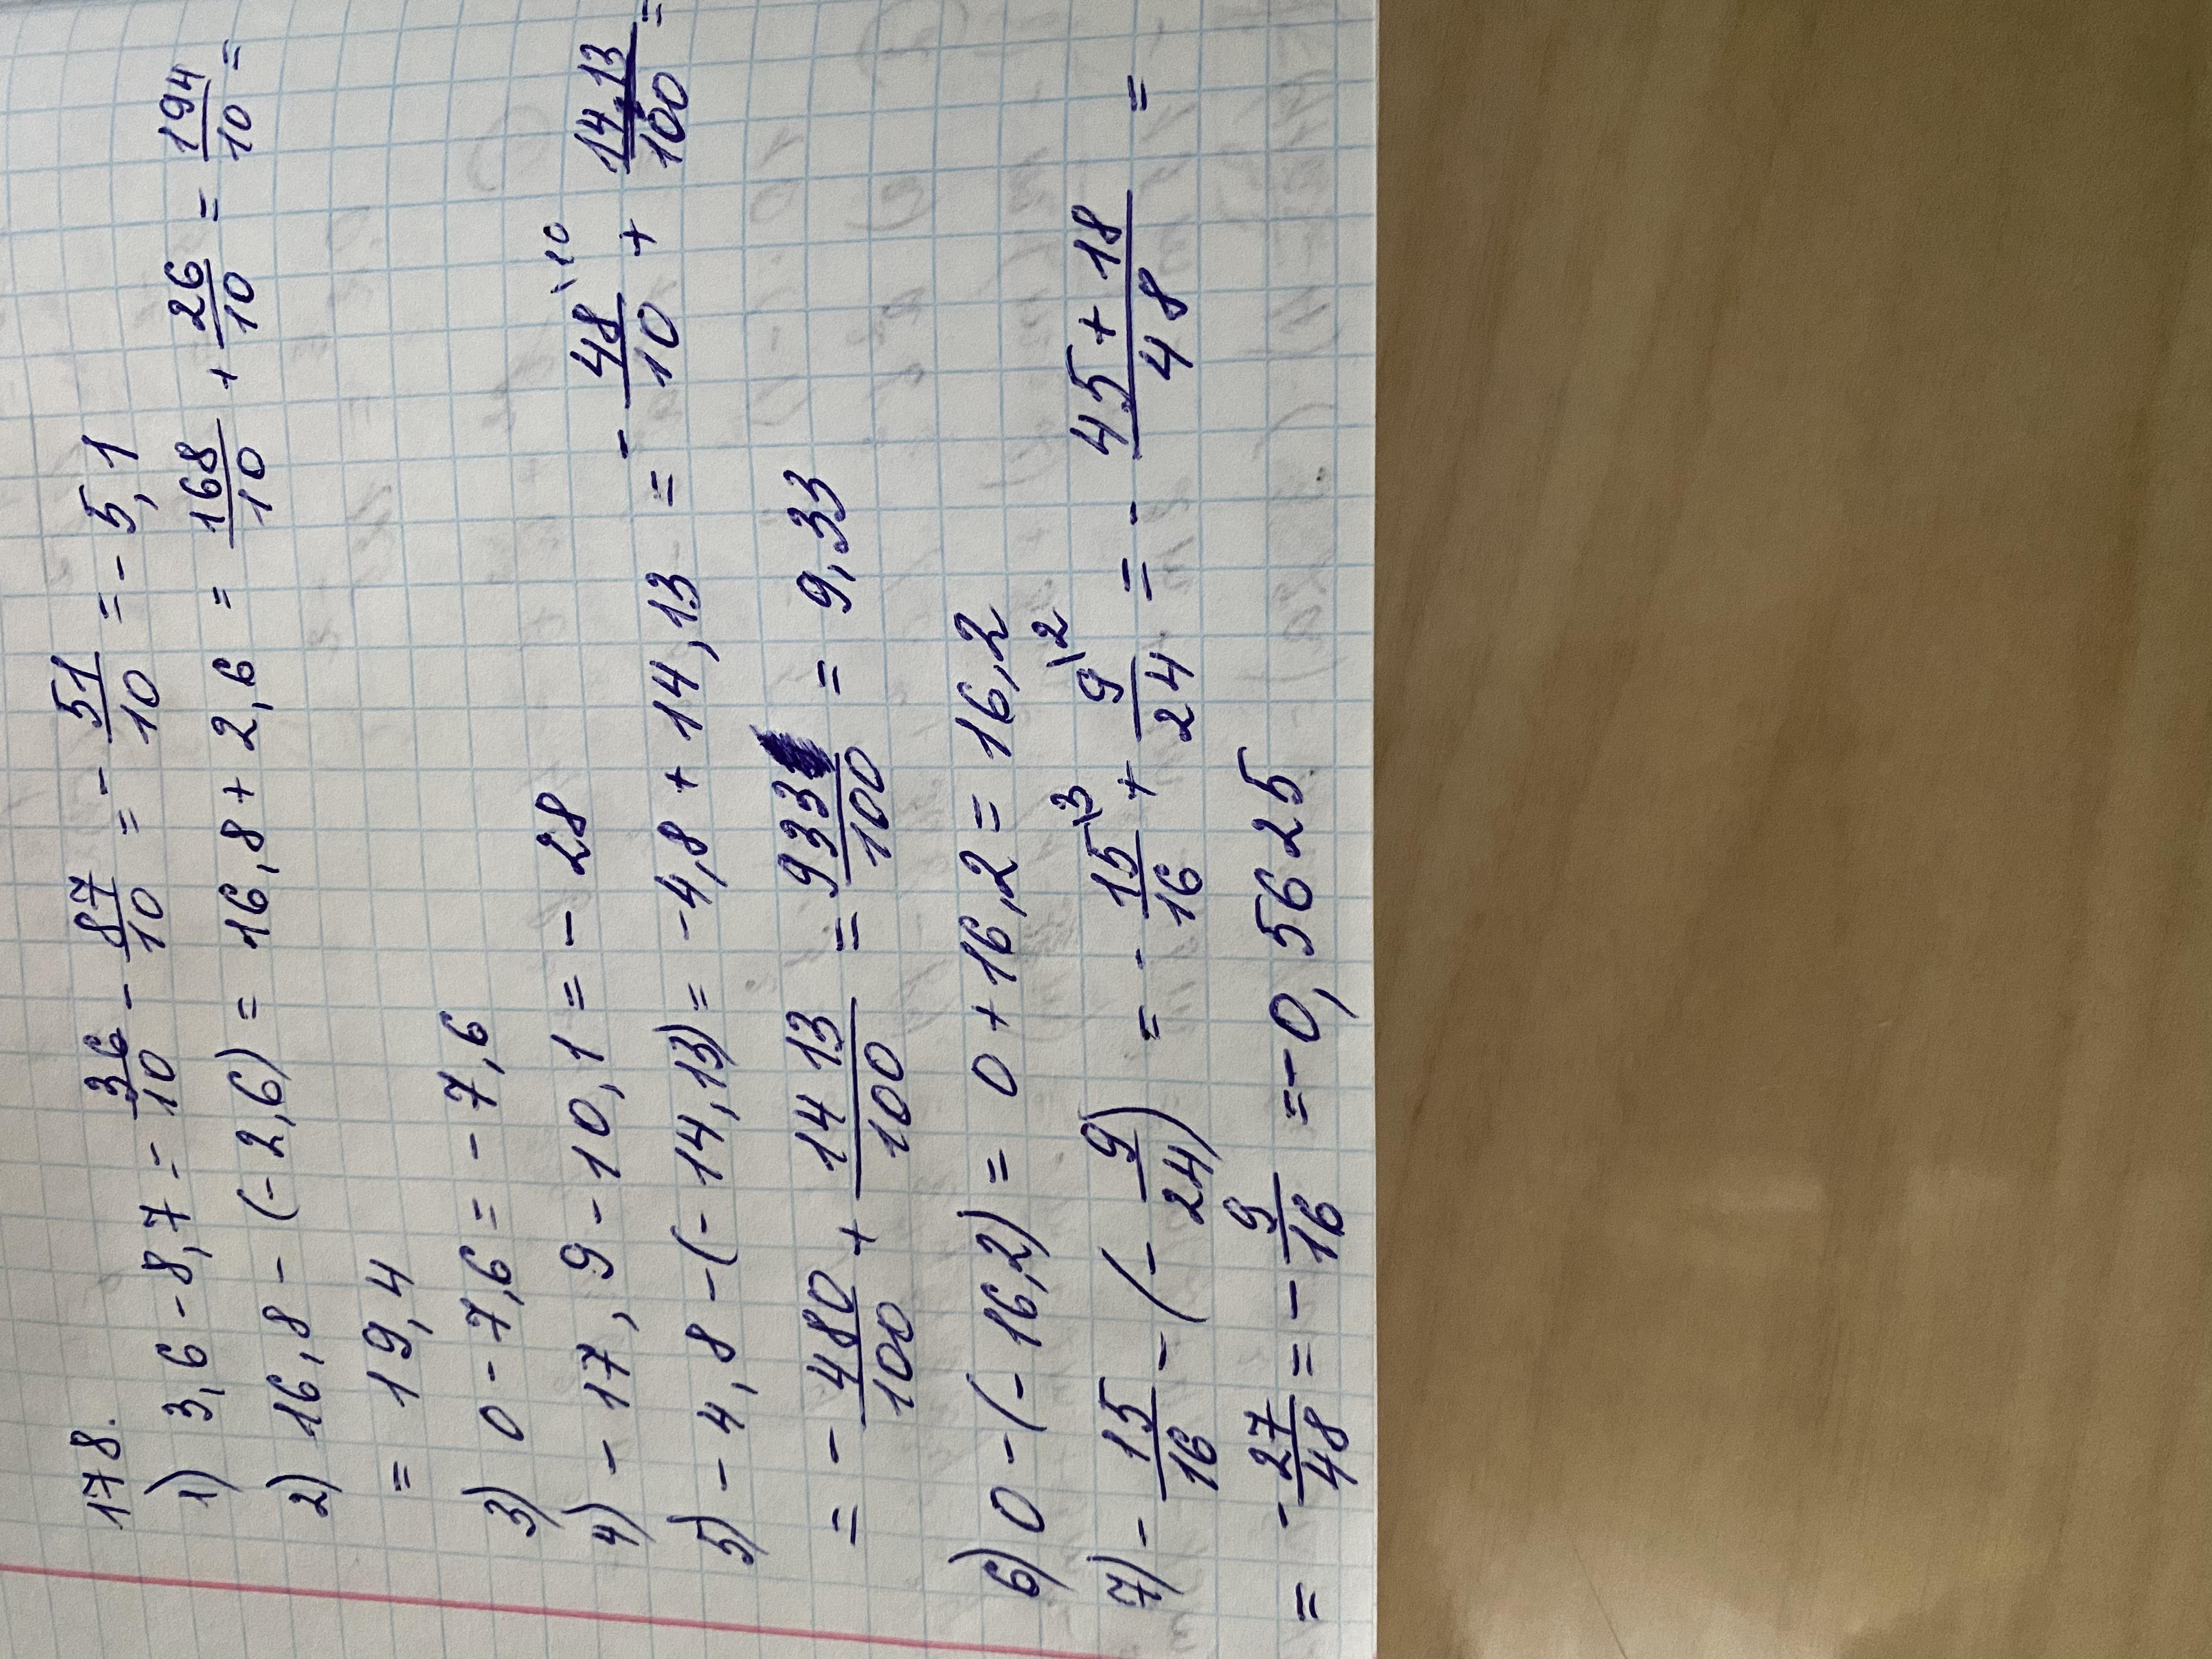 178.
1) 3,6 - 8,7 = 36/10 - 87/10 = - 51/10 = - 5,1
2) 16,8 - (-2,6) = 16,8 + 2,6 = 168/10 + 26/10 = 194/10 =
= 19,4
3) 0 - 7,6 = - 7,6
4) - 17,9 - 10,1 = - 28
5) - 4,8 - (- 14,13) = -4,8 + 14,13 = - 48/10 \10 + 14,13/100 =
= - 480/100 + 1413/100 = 933/100 = 9,33
6) 0 - (- 16,2) = 0 + 16,2 = 16,2
7) - 15/16 - (- 9/24) = - 15/16 \3 + 9/24 \2 = - 45 + 18/48 =
= - 27/48 = - 9/16 = - 0,5625